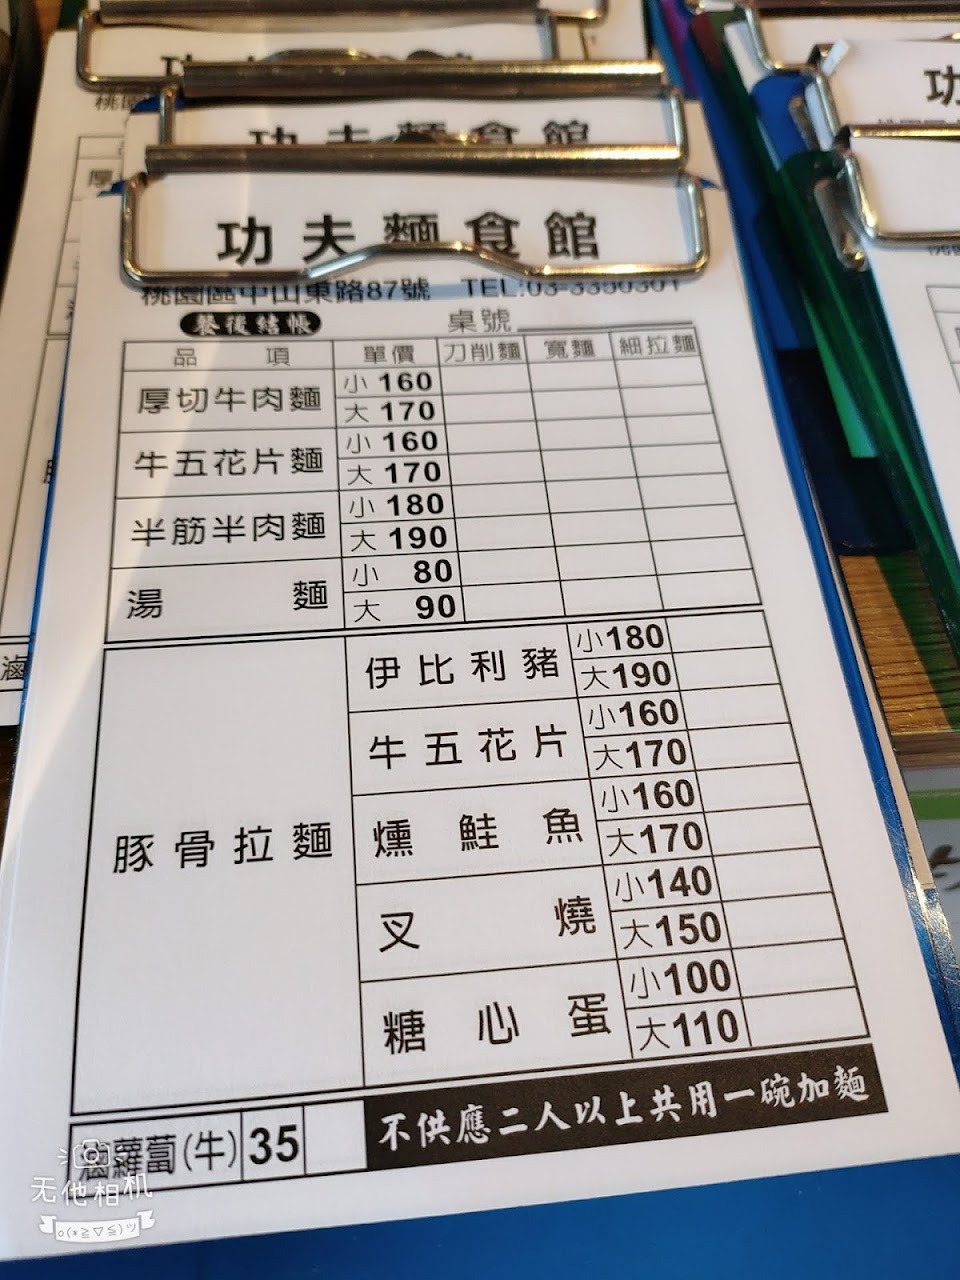 功夫麵食館
功夫麵食館
桃園區中山東路87號 TEL:03-3350301
餐後結帳 桌號
品項 單價 刀削麵 寬麵 細拉麵
厚切牛肉麵 小 160
大 170
牛五花片麵 小 160
大 170
半筋半肉麵 小 180
大 190
湯麵 小 80
大 90
豚骨拉麵
伊比利豬 小 180
大 190
牛五花片 小 160
大 170
燻鮭魚 小 160
大 170
叉燒 小 140
大 150
糖心蛋 小 100
大 110
滷蘿蔔(牛) 35 不供應二人以上共用一碗加麵
无他相机
功
桃園
厚
滷